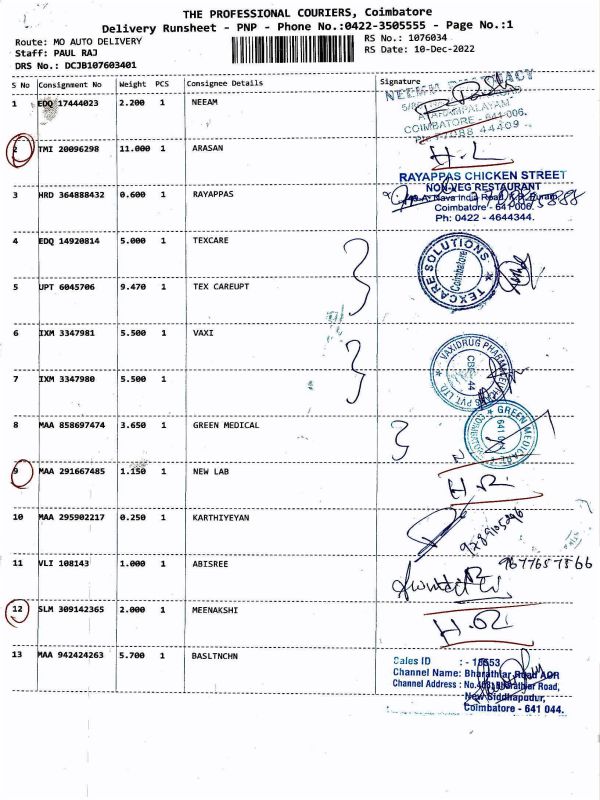 THE PROFESSIONAL COURIERS, Coimbatore
Delivery Runsheet - PNP - Phone No.:0422-3505555 - Page No.:1
Route: MO AUTO DELIVERY RS No.: 1076034
Staff: PAUL RAJ RS Date: 10-Dec-2022
DRS No.: DCJB107603401
S No Consignment No Weight PCS Consignee Details Signature
1 EDQ 17444023 2.200 1 NEEAM
NEEMM PHARMACY
COIMBATORE - 641 006.
2 TMI 20096298 11.000 1 ARASAN
3 HRD 364888432 0.600 1 RAYAPPAS
RAYAPPAS CHICKEN STREET
NON-VEG RESTAURANT
Nava India Road,
Coimbatore - 641 006.
Ph: 0422 - 4644344.
4 EDQ 14920814 5.000 1 TEXCARE
TEXCARE SOLUTIONS
Coimbatore
5 UPT 6045706 9.470 1 TEX CAREUPT
6 IXM 3347981 5.500 1 VAXI
7 IXM 3347980 5.500 1
8 MAA 858697474 3.650 1 GREEN MEDICAL
GREEN MEDICARE
9 MAA 291667485 1.150 1 NEW LAB
10 MAA 295902217 0.250 1 KARTHIYEYAN
11 VLI 108143 1.000 1 ABISREE
12 SLM 309142365 2.000 1 MEENAKSHI
13 MAA 942424263 5.700 1 BASLTNCHN
Sales ID : - 
Channel Name: Bharathiar Road
Channel Address : Bharathiar Road,
New Siddhapudur,
Coimbatore - 641 044.